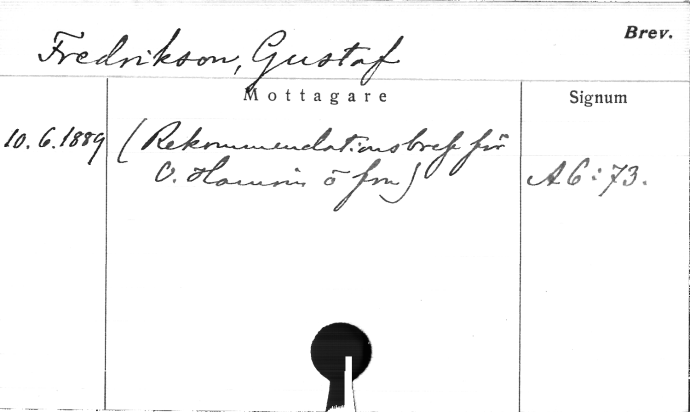 Brev.
Fredrikson, Gustaf
Mottagare
Signum
10.6.1889 (Rekommendationsbref för
O. Hamrin o fru)
A6:73.